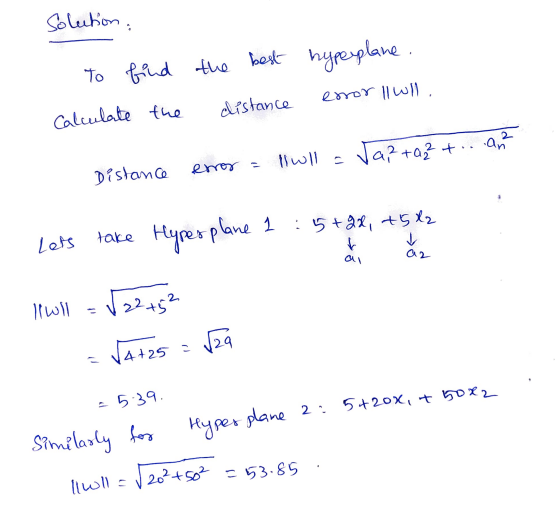 Solution :
To find the best hyperplane.
Calculate the distance error ||w||.
Distance error = ||w|| = √a₁²+a₂²+ ·· ·aₙ²
Lets take Hyperplane 1 : 5+2x₁ +5x₂
↓ ↓
a₁ a₂
||w|| = √2²+5²
= √4+25 = √29
= 5.39.
Similarly for Hyperplane 2 : 5+20x₁ + 50x₂
||w|| = √20²+50² = 53.85 .